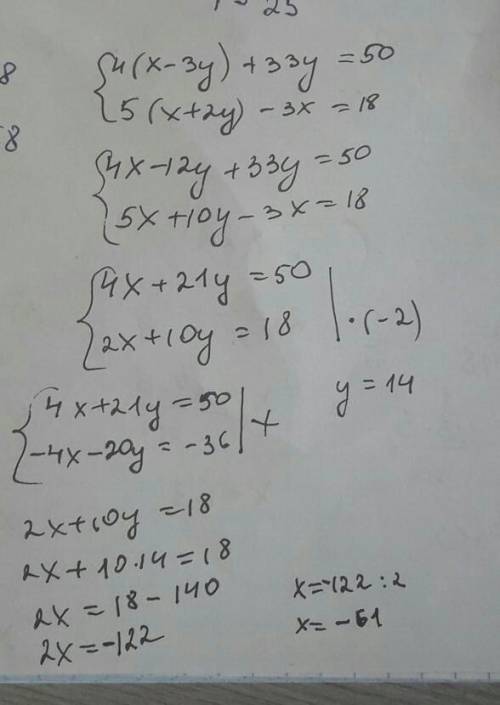 25
8
8
4(x-3y)+33y=50
5(x+2y)-3x=18
4x-12y+33y=50
5x+10y-3x=18
4x+21y=50
2x+10y=18 | ·(-2)
4x+21y=50
-4x-20y=-36 | +
y=14
2x+10y=18
2x+10·14=18
2x=18-140
2x=-122
x=-122:2
x=-61